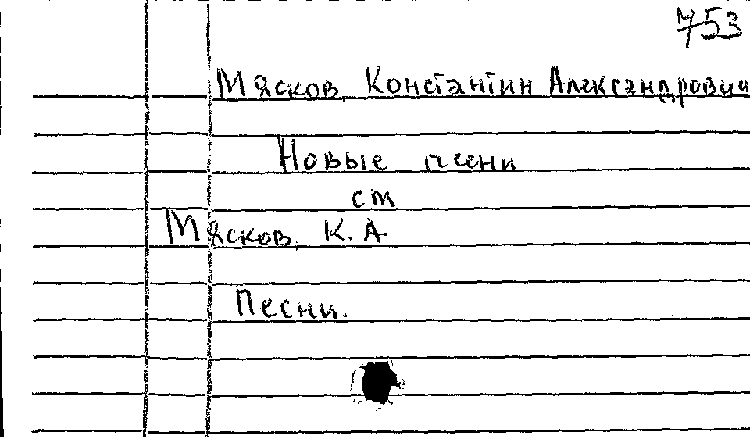 753
Мясков, Константин Александрович
Новые песни
см
Мясков, К. А.
Песни.